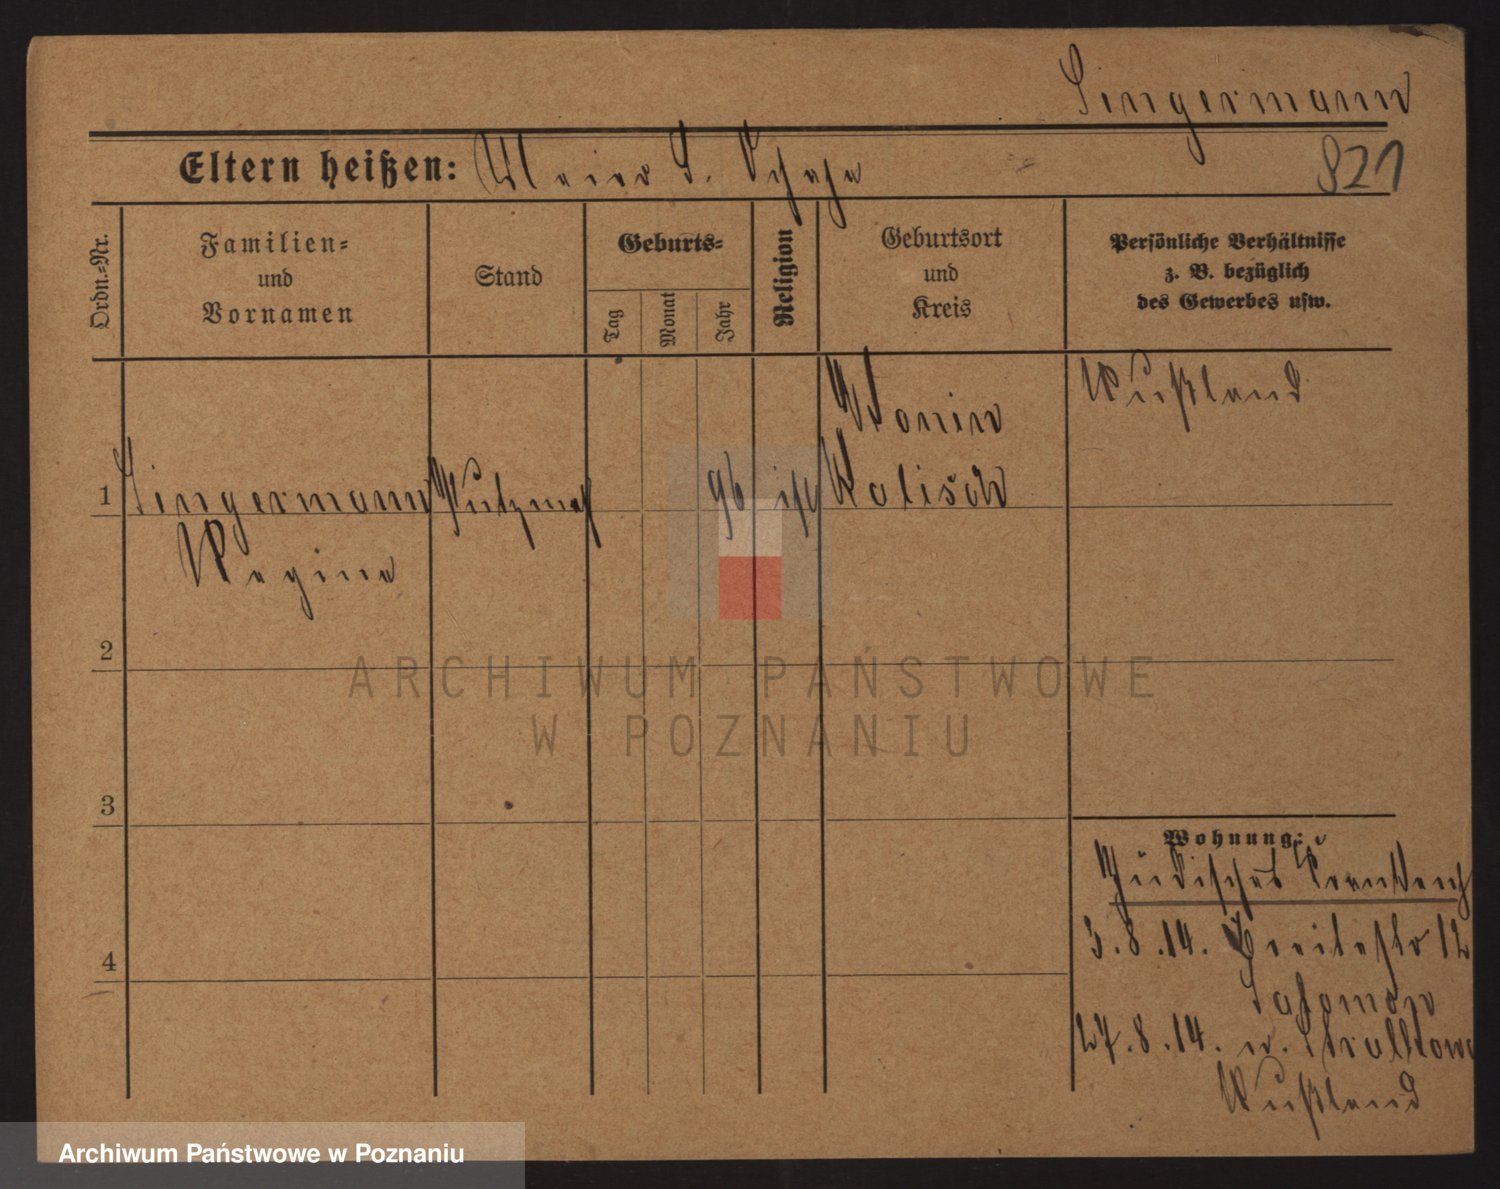 Singermann
Eltern heißen: Meier S.
821
Ordn.-Nr.
Familien-
und
Vornamen
Stand
Geburts-
Tag
Monat
Jahr
Religion
Geburtsort
und
Kreis
Persönliche Verhältnisse
z. B. bezüglich
des Gewerbes usw.
Konin
Rußland
1 Singermann Putzmach 96 isr Kalisch
Regina
2
3
4
Wohnung:
Jüdisches Krankenh
3.8.14. Breitestr 12
Salomon
27.8.14. n.
Rußland
ARCHIWUM PAŃSTWOWE
W POZNANIU
Archiwum Państwowe w Poznaniu